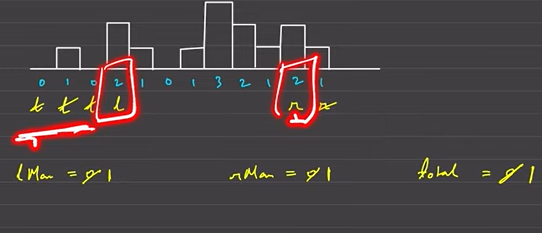 0 1 0 2 1 0 1 3 2 1 2 1
l l l l r r
lMax = 0 1 rMax = 0 1 total = 0 1